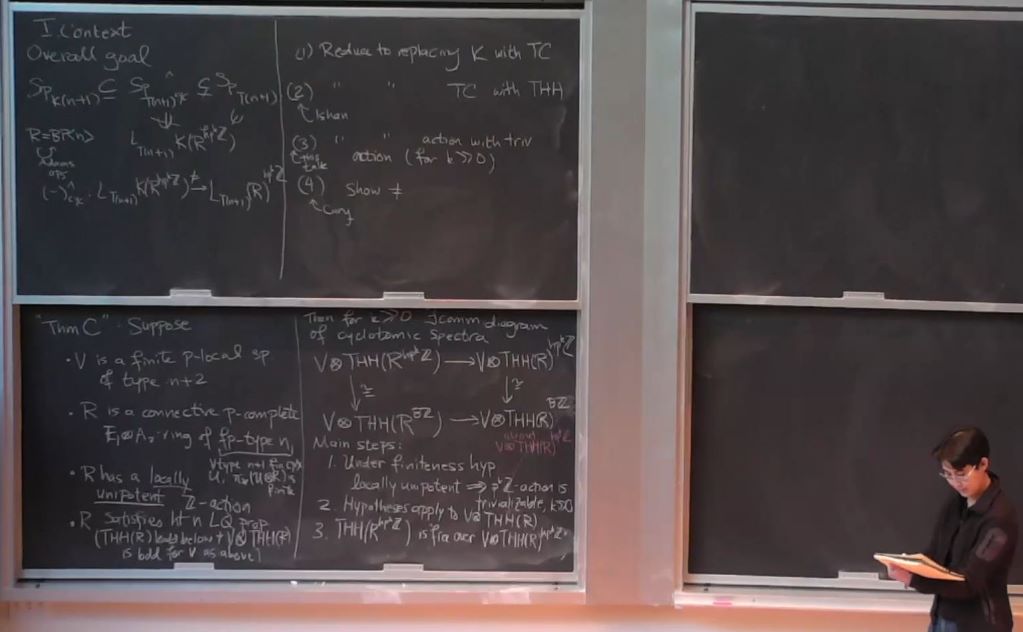 I. Context
Overall goal
Sp_{K(n+1)} ⊆ Sp_{T(n+1)}^{\hat{}}_{cyc} ⊊ Sp_{T(n+1)}
L_{T(n+1)} K(R^{hp^kℤ})
R = BP⟨n⟩
Adams
ops
(-)^{\hat{}}_{cyc} : L_{T(n+1)} K(R^{hp^kℤ}) ≠→ L_{T(n+1)} (R)^{hp^kℤ}
(1) Reduce to replacing K with TC
(2) " " TC with THH
↑ Ishan
(3) " " action with triv
↑ this talk
action (for k ≫ 0)
(4) Show ≠
↑
"Thm C". Suppose
• V is a finite p-local sp
of type n+2
• R is a connective p-complete
E_1⊗A_2-ring of fp-type n,
∀ type n+1 fin cpx
U, π_*(U⊗R) is
finite
• R has a locally
unipotent ℤ-action
• R satisfies ht n LQ prop
(THH(R) bdd below + V⊗THH(R)
is bdd for V as above)
Then for k ≫ 0 ∃ comm diagram
of cyclotomic spectra
V⊗THH(R^{hp^kℤ}) → V⊗THH(R)^{hp^kℤ}
↓≅ ↓≅
V⊗THH(R^{Bℤ}) → V⊗THH(R)^{Bℤ}
V⊗THH(R)^{hp^kℤ}
Main steps:
1. Under finiteness hyp,
locally unipotent ⟹ p^kℤ-action is
trivializable, k≫0
2. Hypotheses apply to V⊗THH(R)
3. THH(R^{hp^kℤ}) is over V⊗THH(R)^{hp^kℤ}